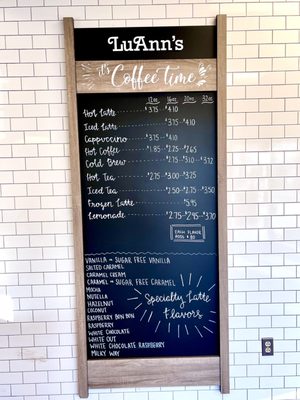 LuAnn's
it's Coffee time
12oz. 16oz. 20oz. 32oz.
Hot Latte $3.75 $4.10
Iced Latte $3.75 $4.10
Cappuccino $3.75 $4.10
Hot Coffee $1.85 $2.25 $2.65
Cold Brew $2.75 $3.10 $3.72
Hot Tea $2.75 $3.00 $3.25
Iced Tea $1.50 $2.75 $3.50
Frozen Latte $5.95
Lemonade $2.75 $2.95 $3.70
EACH FLAVOR
ADD $.80
VANILLA - SUGAR FREE VANILLA
SALTED CARAMEL
CARAMEL CREAM
CARAMEL - SUGAR FREE CARAMEL
MOCHA
NUTELLA
HAZELNUT
COCONUT
RASPBERRY BON BON
RASPBERRY
WHITE CHOCOLATE
WHITE OUT
WHITE CHOCOLATE RASPBERRY
MILKY WAY
Specialty Latte
Flavors